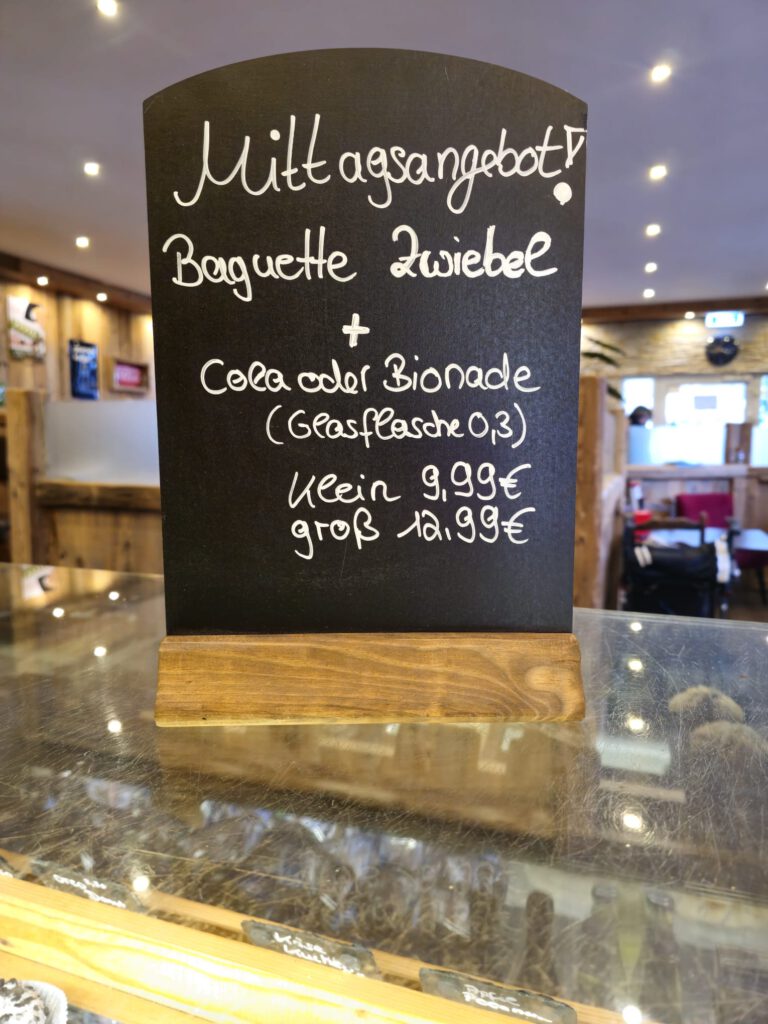 Mittagsangebot!
Baguette Zwiebel
+
Cola oder Bionade
(Glasflasche 0,3)
Klein 9,99€
groß 12,99€
Käse
Kuchen